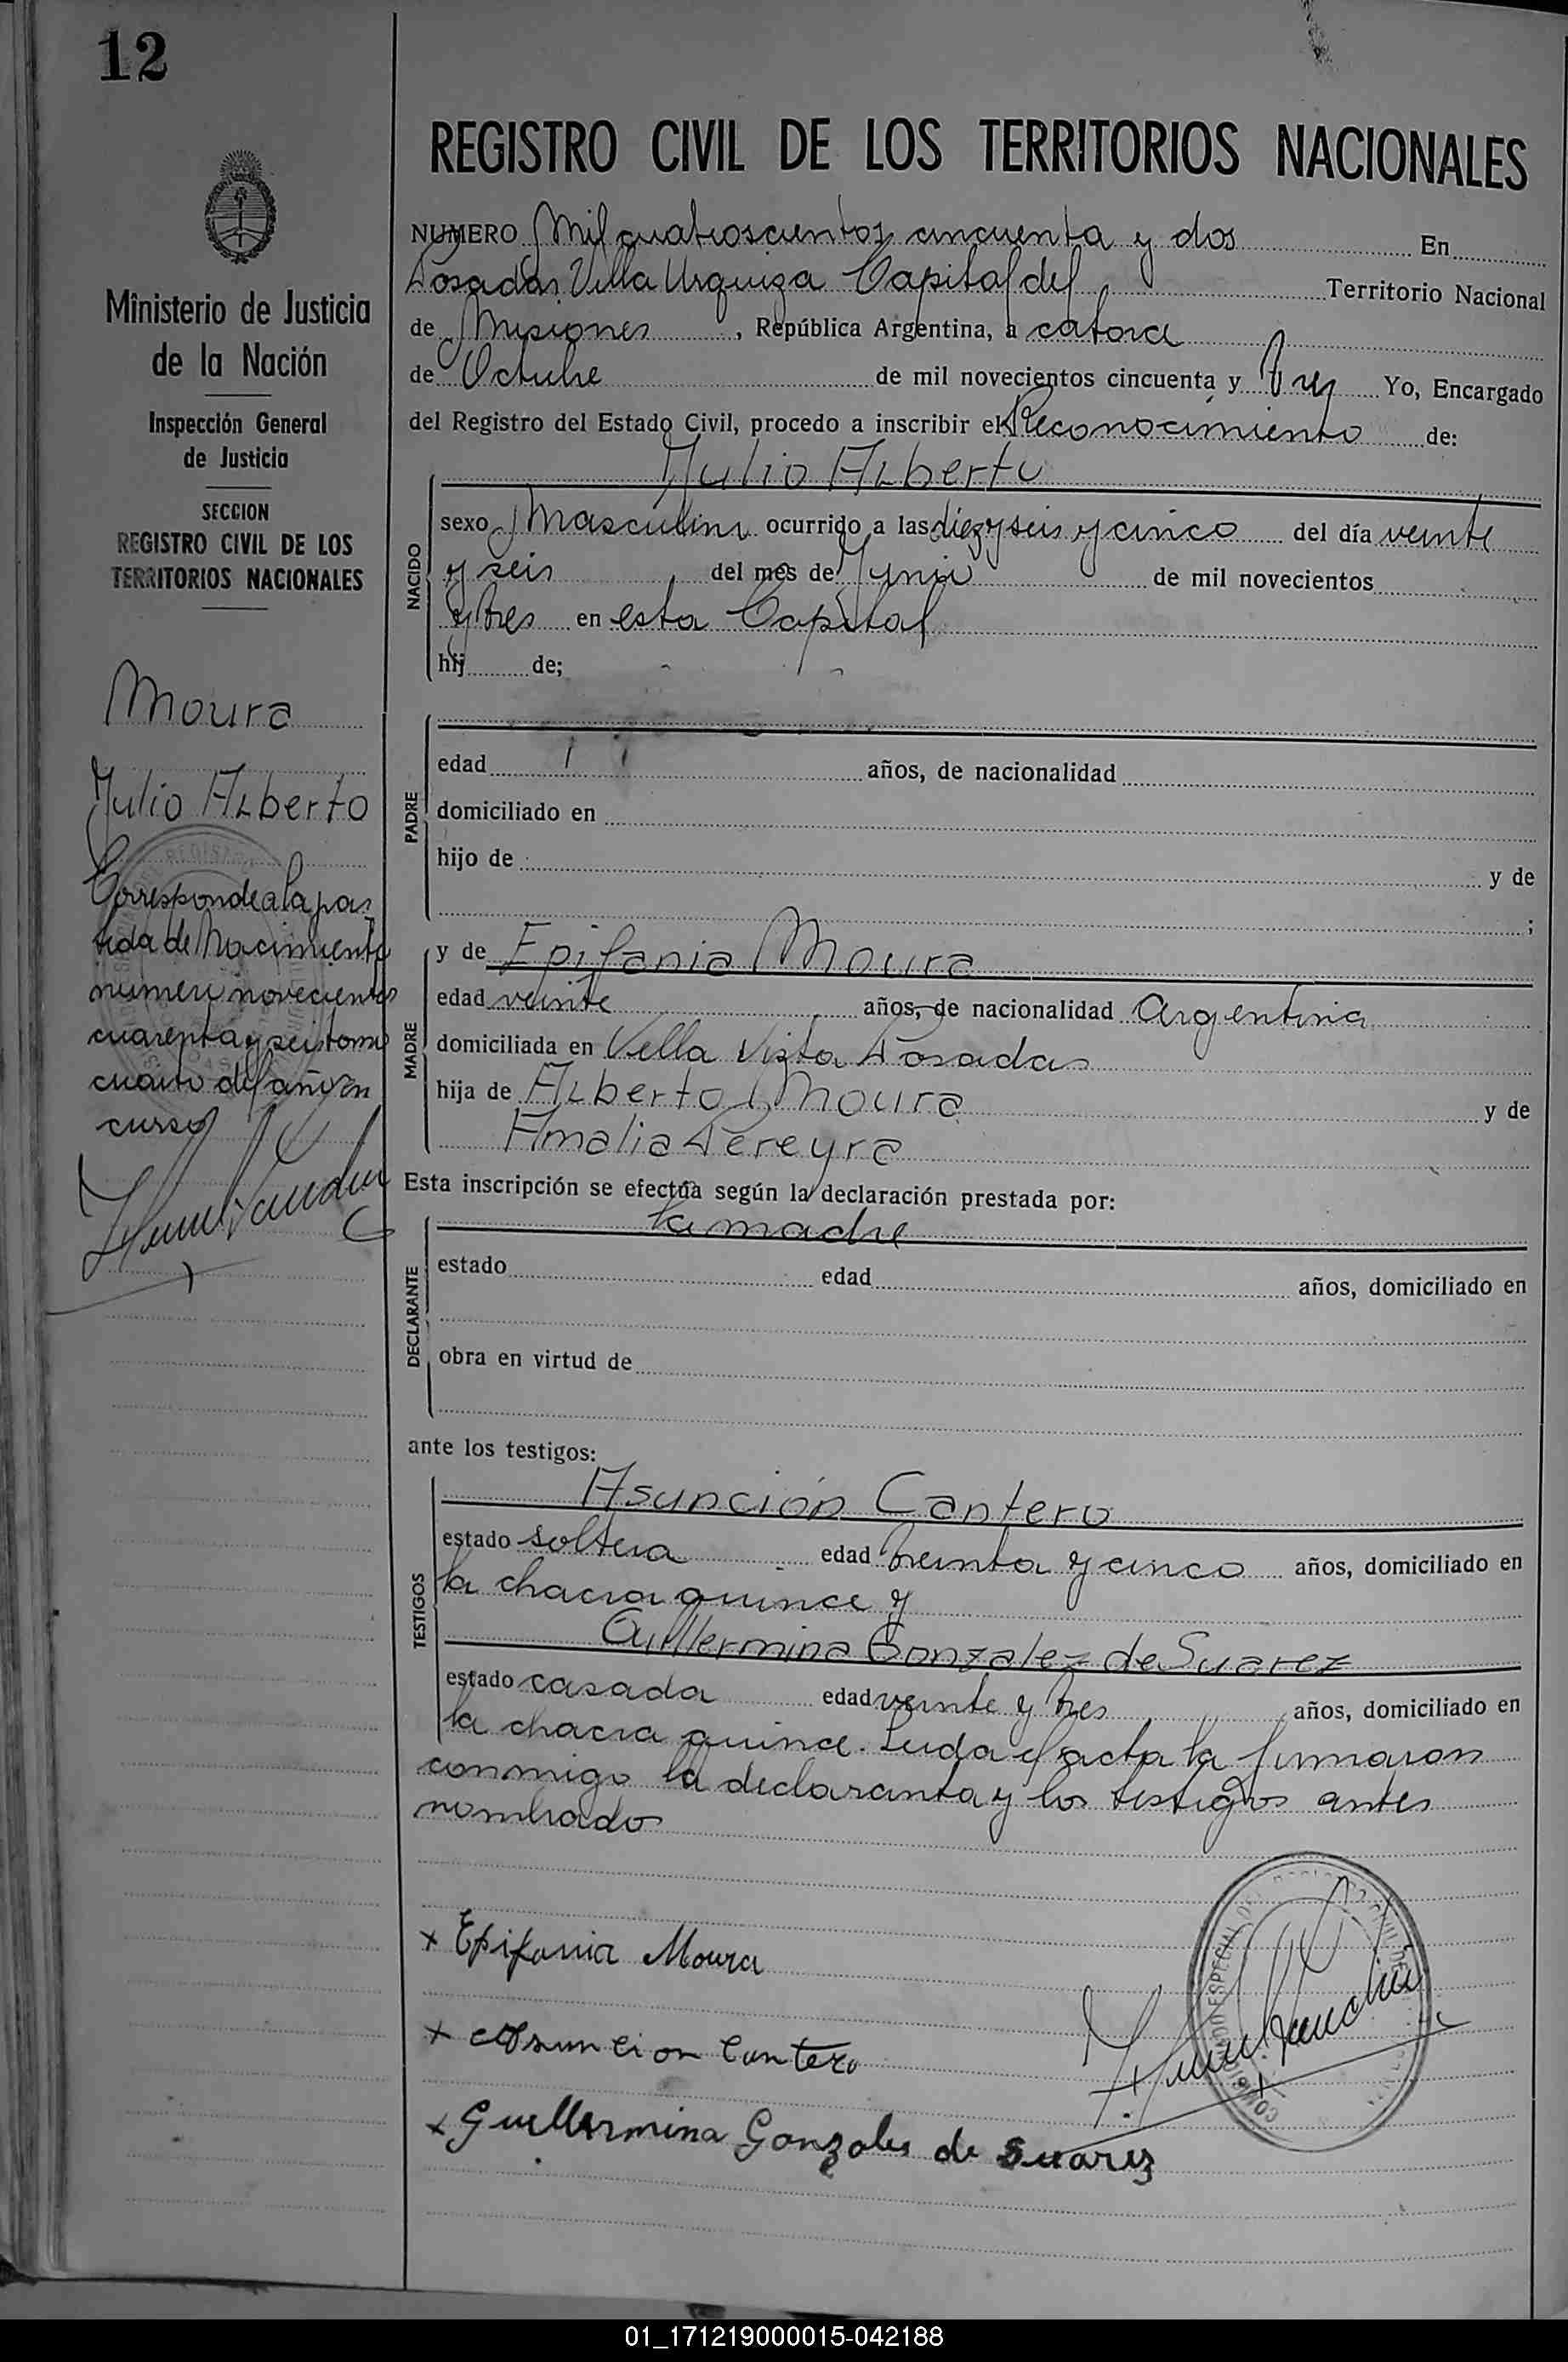 12
REGISTRO CIVIL DE LOS TERRITORIOS NACIONALES
NUMERO Mil cuatroscientos cincuenta y dos En
Posadas Villa Urquiza Capital del Territorio Nacional
de Misiones, República Argentina, a catorce
de Octubre de mil novecientos cincuenta y tres Yo, Encargado
del Registro del Estado Civil, procedo a inscribir el Reconocimiento de:
Julio Alberto
NACIDO
sexo Masculino ocurrido a las diez y seis y cinco del día veinte
y seis del mes de Junio de mil novecientos
y tres en esta Capital
hij de;
PADRE
edad años, de nacionalidad
domiciliado en
hijo de y de
;
MADRE
y de Epifania Moura
edad veinte años, de nacionalidad Argentina
domiciliada en Villa Vista Posadas
hija de Alberto Moura y de
Amalia Pereyra
Esta inscripción se efectúa según la declaración prestada por:
la madre
DECLARANTE
estado edad años, domiciliado en
obra en virtud de
ante los testigos:
TESTIGOS
Asunción Cantero
estado soltera edad treinta y cinco años, domiciliado en
la chacra quince y
Guillermina Gonzalez de Suarez
estado casada edad veinte y tres años, domiciliado en
la chacra quince. Leida el acta la firmaron
conmigo la declaranta y los testigos antes
nombrado
x Epifania Moura
x Asuncion Cantero
x Guillermina Gonzales de Suarez
Ministerio de Justicia
de la Nación
Inspección General
de Justicia
SECCION
REGISTRO CIVIL DE LOS
TERRITORIOS NACIONALES
Moura
Julio Alberto
Corresponde a la par
tida de Nacimiento
numero novecientos
cuarenta y seis tomo
cuarto del año en
curso
01_171219000015-042188